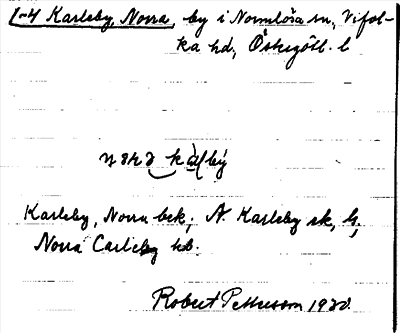 1-4 Karleby, Norra, by i Normlösa sn, Vifol-
ka hd, Östergötl. l
Karleby, Norra bek; N. Karleby sk, G;
Norra Carleby kb.
Robert Pettersson 1920.